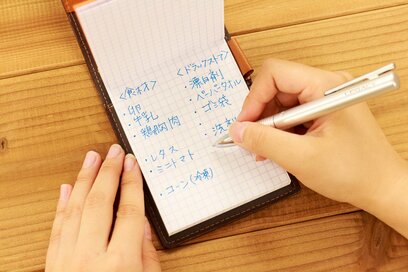 <食材>
・卵
・牛乳
・鶏胸肉
・レタス
・ミニトマト
・コーン(冷凍)
<ドラッグストア>
・漂白剤
・ペーパータオル
・ゴミ袋
・洗剤